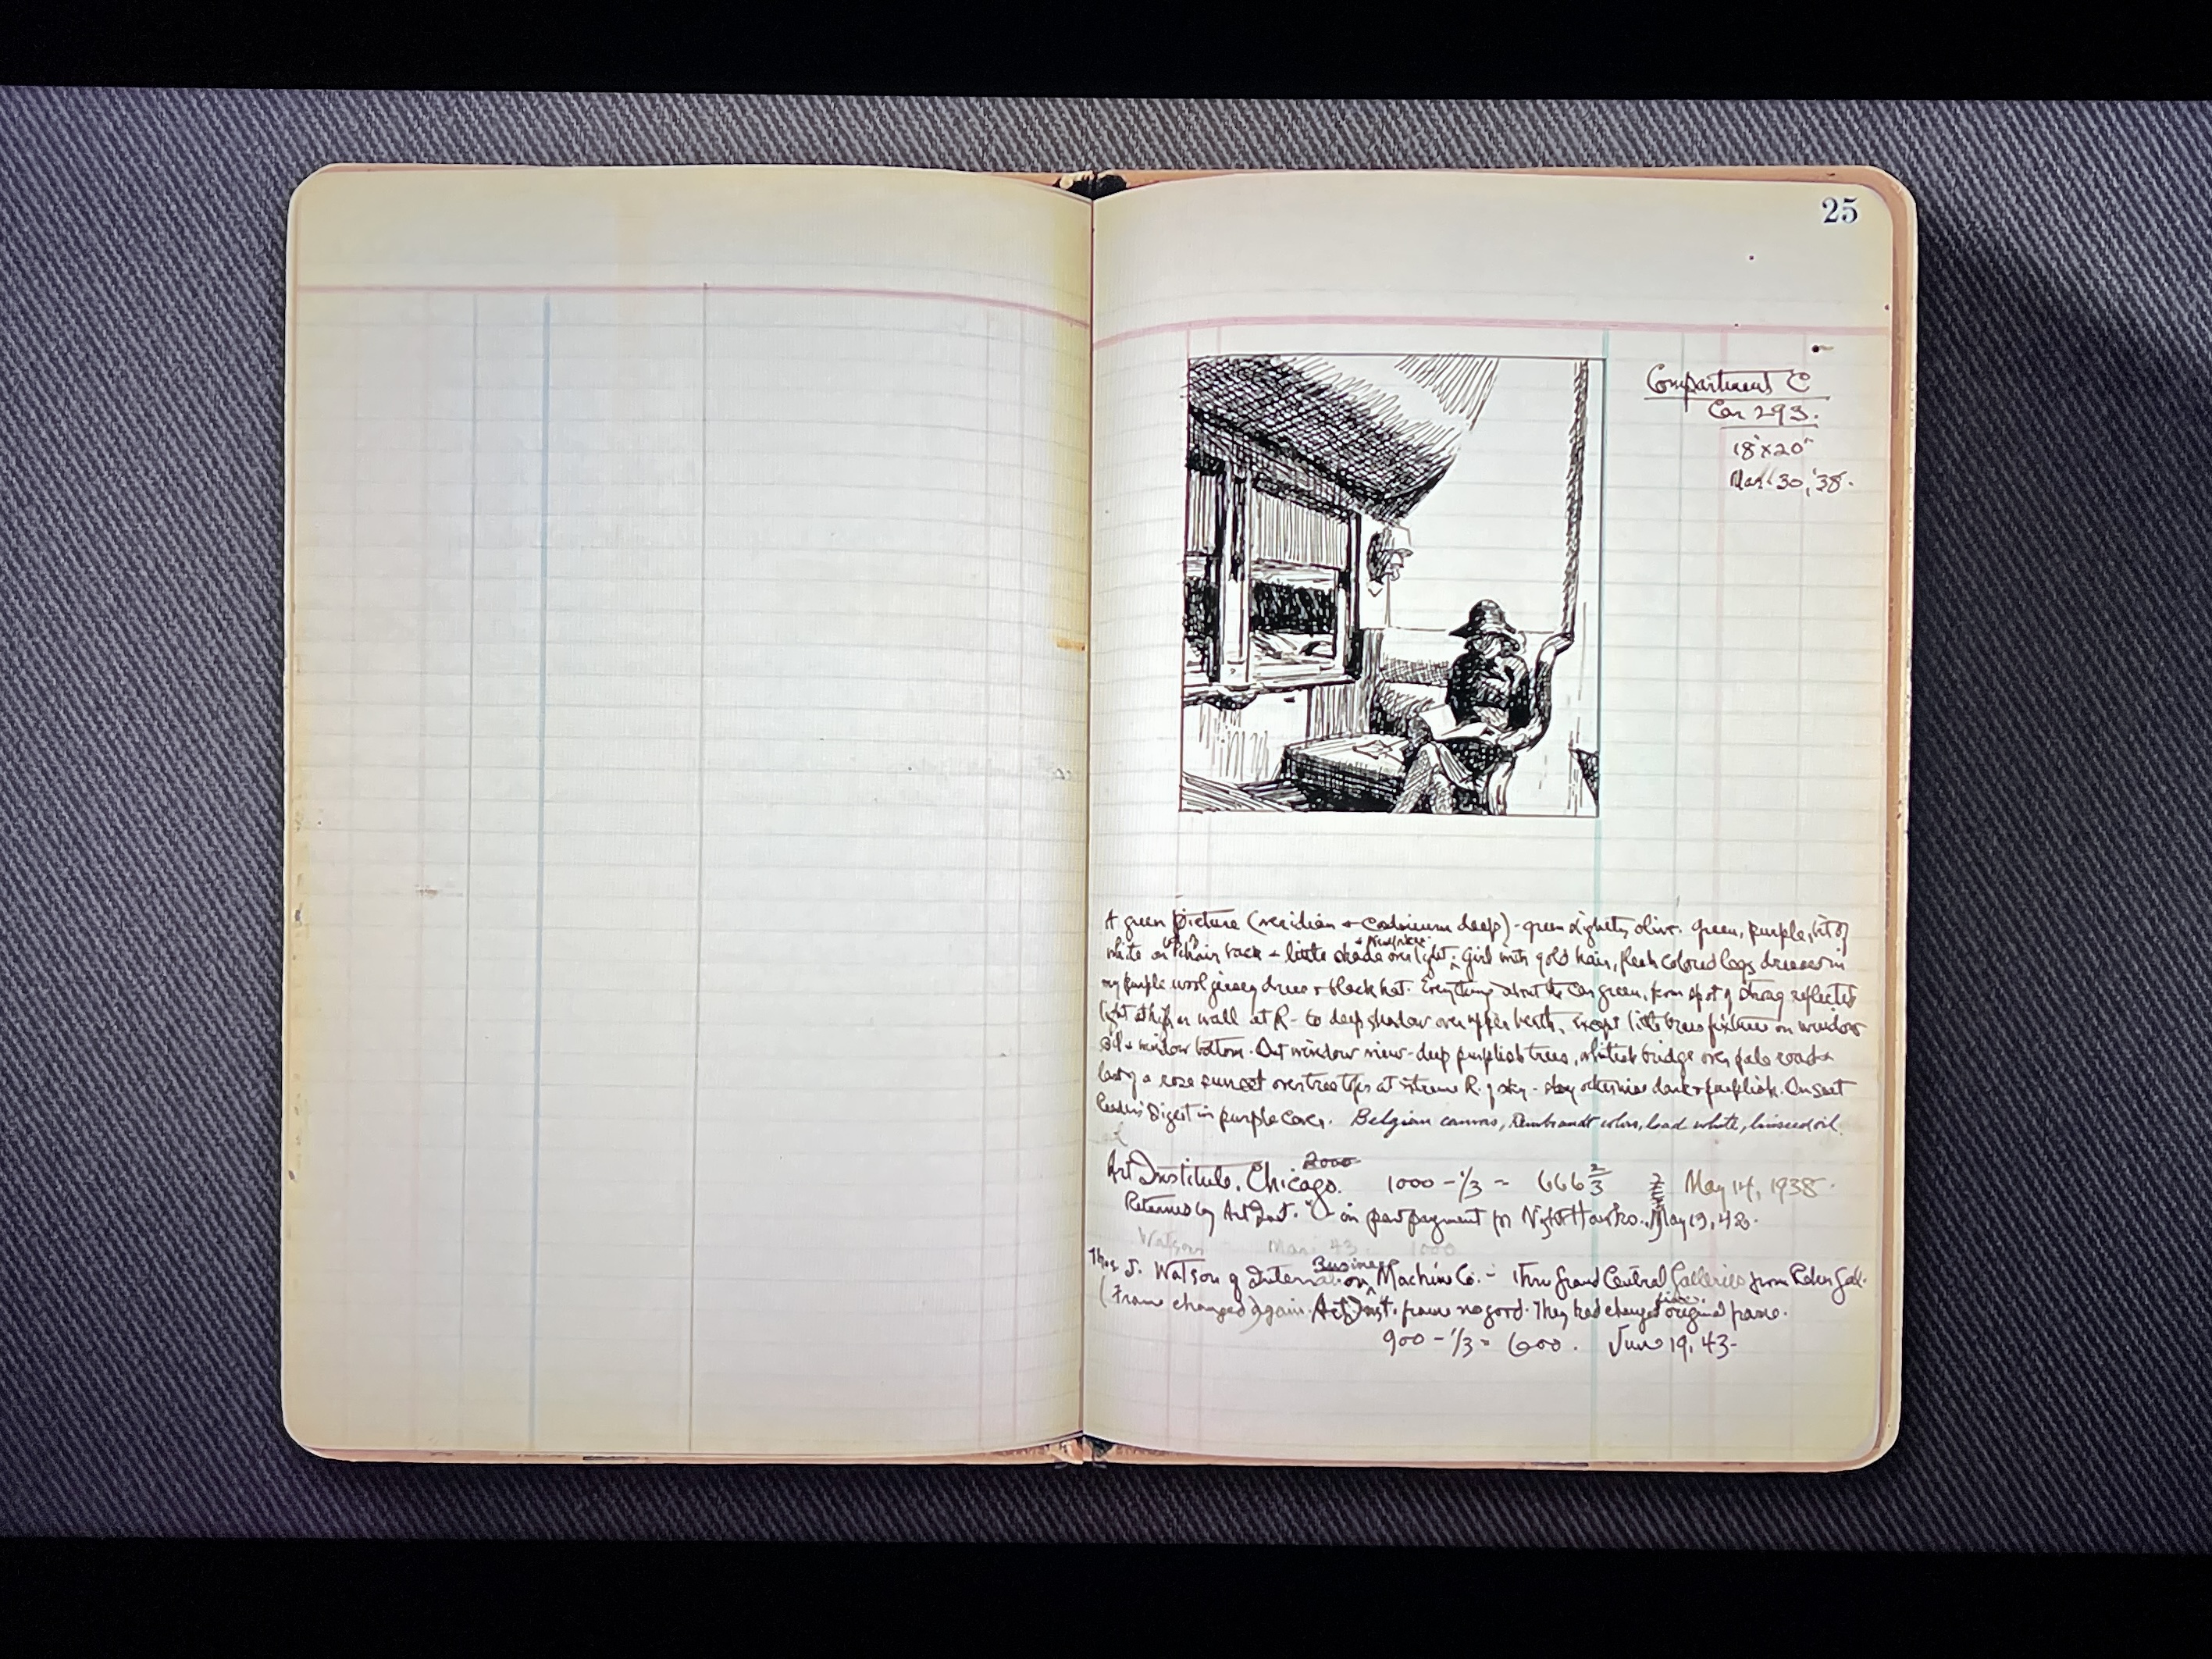 25
Compartment C
Car 293.
18"x20"
Mar 30, '38.
A green picture (viridian + cadmium deep) - green slightly olive. Green, purple, bit of
white on chair back + little shade over light. Girl with gold hair, flesh colored legs dressed in
my purple wool jersey dress + black hat. Everything about the car green, from spot of strong reflected
light at high on wall at R - to deep shadow over upper berth, except little brass fixtures on window
sill + window bottom. Out window view - deep purplish trees, whitish bridge over pale road +
last of a rose sunset over tree tops at extreme R. of sky - sky otherwise dark + purplish. On seat
Readers Digest in purple cover. Belgian canvas, Rembrandt colors, lead white, linseed oil.
2000
Art Institute, Chicago. 1000 - 1/3 = 666 2/3 May 14, 1938.
Returned by Art Inst. in part payment for Night Hawks. May 19, 42.
Watson Mar. 43 1000
Thos J. Watson of Internation Business Machine Co. - thru Grand Central Galleries from Rehn Gall.
(Frame changed again. Art Inst. frame no good. They had changed original frame.
900 - 1/3 = 600. June 19, 43-